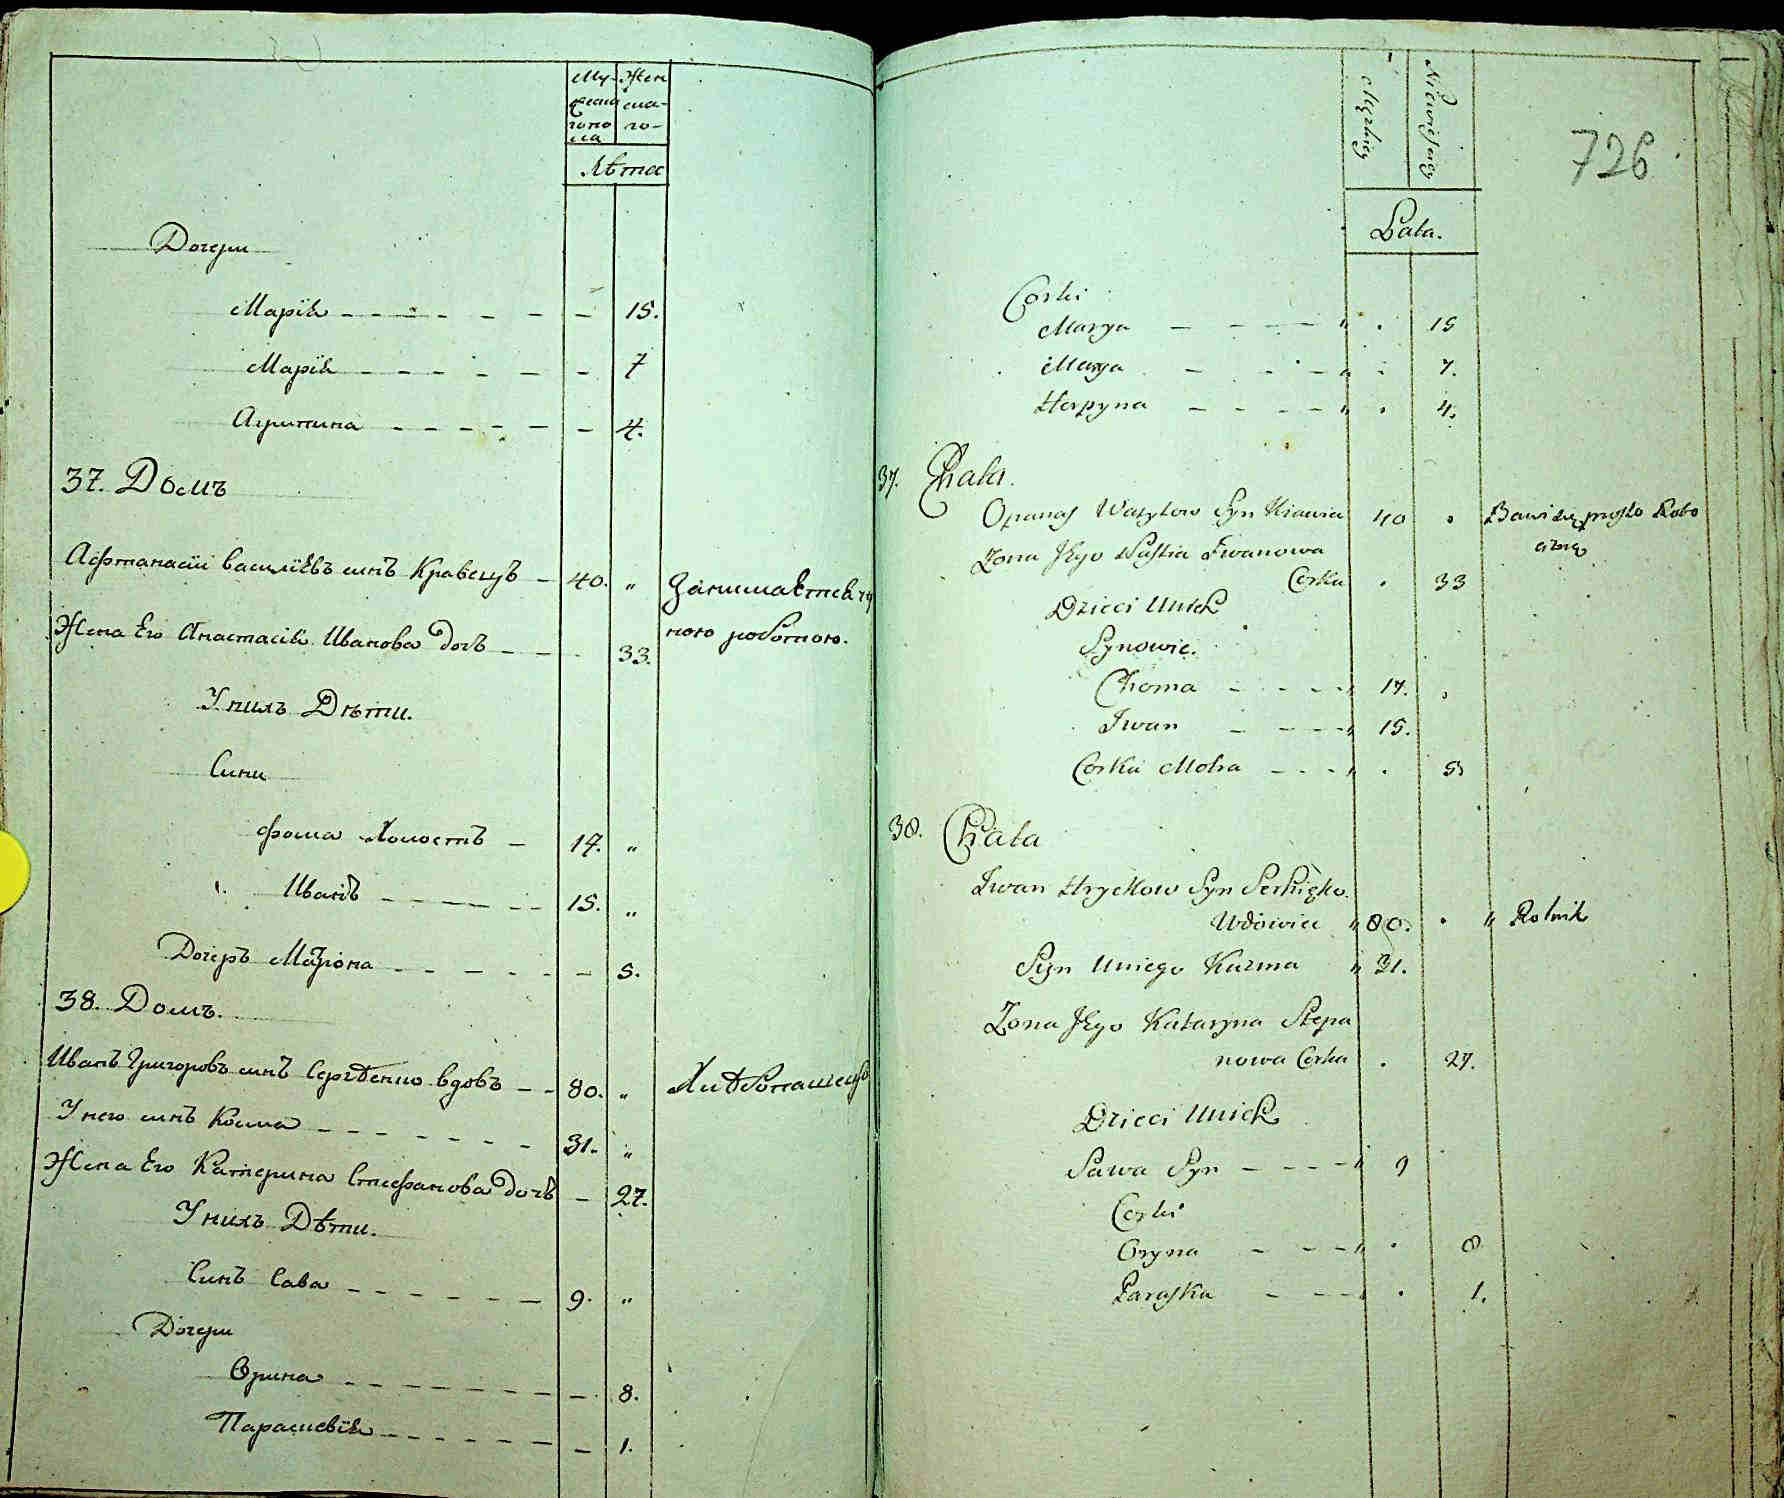 Му-
жеска
гопо
ла
Жен
ска-
го-
Лѣта
Дочери
Марія - - - - - - - 15.
Марія - - - - - - 7
Агрипина - - - - - - 4.
37. Домъ
Афтанасій Василіевъ синъ Кравецъ - 40. „
Занимаетсья чу
ною роботою.
Жена Его Анастасія Иванова дочь - - - 33.
У нихъ Дѣти.
Сини
Фома Холостъ - 17. „
Иванъ - - - - - - 15. „
Дочерь Матрона - - - - - - 5.
38. Домъ.
Иванъ Григоровъ синъ Сергѣенко вдовъ - - 80. „
Хлѣбопашецъ
У него синъ Козма - - - - - - - 31. „
Жена Его Катерина Стефанова дочь - 27.
У нихъ Дѣти.
Синъ Сава - - - - - - 9. „
Дочери
Орина - - - - - - - - - 8.
Параскевія - - - - - - - - 1.
Męzkiey
Niewiesciey
726
Lata.
Corki
Marya - - - - „ . 15
Marya - - - - „ - 7.
Horpyna - - - - „ . 4.
37. Chata.
Opanas Wasylow Syn Krawia 40 „
Bawi się prosto Robo
cizną
Zona Jego Nastia Iwanowa
Corka . 33
Dzieci Unich
Synowie.
Choma - - - - „ 17. „
Iwan - - - - „ 15.
Corka Motra - - - „ . 5
38. Chata
Iwan Hryckow Syn Serhięko.
Wdowiec „ 80. . „ Rolnik
Syn Uniego Kuzma „ 31.
Zona Jego Kataryna Stepa
nowa Corka . 27.
Dzieci Unich
Sawa Syn - - - - „ 9
Corki
Oryna - - - „ . 8
Paraska - - - - . 1.